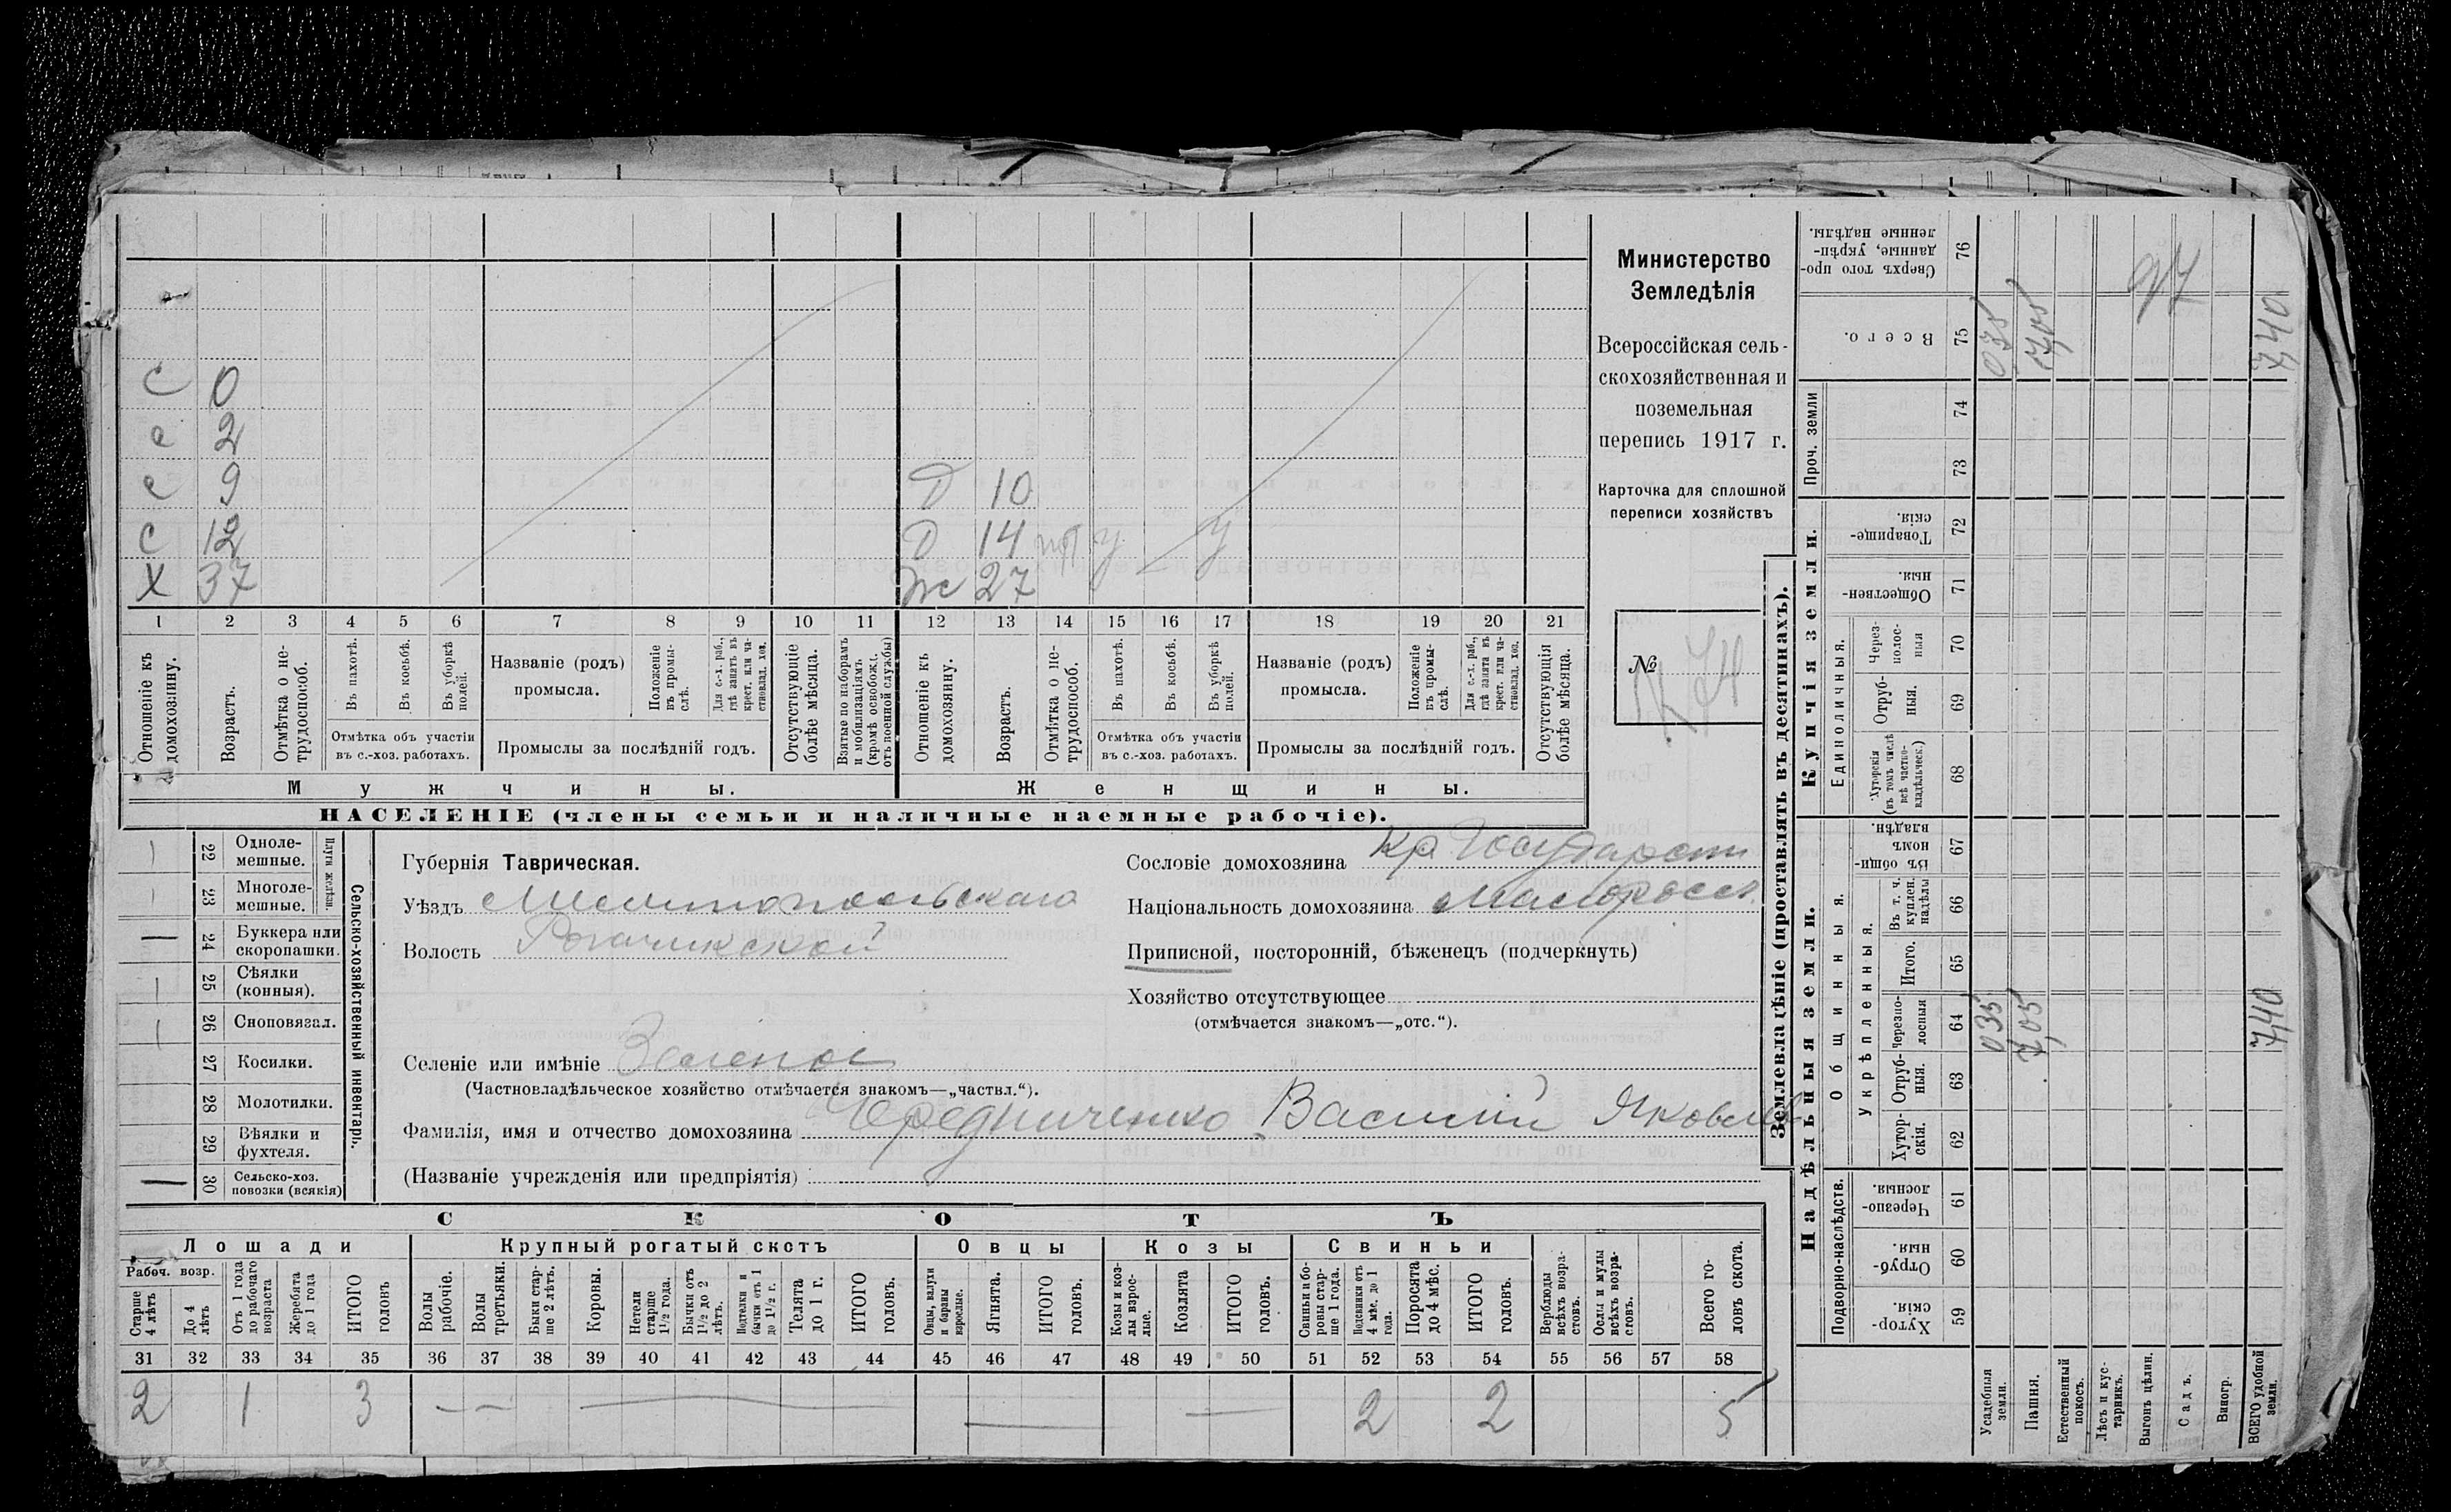 С 0
с 2
с 9 Д 10
С 12 Д 14 у у
Х 37 Ж 27
1 2 3 4 5 6 7 8 9 10 11 12 13 14 15 16 17 18 19 20 21
Отношеніе къ домохозяину.
Возрастъ.
Отмѣтка о не-трудоспособ.
Въ пахотѣ.
Въ косьбѣ.
Въ уборкѣ полей.
Отмѣтка объ участіи въ с.-хоз. работахъ.
Названіе (родъ) промысла.
Положеніе въ промы-слѣ.
Для с.-х. раб., гдѣ занятъ въ крест. или ча-стновлад. хоз.
Промыслы за послѣдній годъ.
Отсутствующіе болѣе мѣсяца.
Взятые по наборамъ и мобилизаціямъ (кромѣ освобожд. отъ военной службы)
Отношеніе къ домохозяину.
Возрастъ.
Отмѣтка о не-трудоспособ.
Въ пахотѣ.
Въ косьбѣ.
Въ уборкѣ полей.
Отмѣтка объ участіи въ с.-хоз. работахъ.
Названіе (родъ) промысла.
Положеніе въ промы-слѣ.
Для с.-х. раб., гдѣ занята въ крест. или ча-стновлад. хоз.
Промыслы за послѣдній годъ.
Отсутствующія болѣе мѣсяца.
Мужчины. Женщины.
НАСЕЛЕНІЕ (члены семьи и наличные наемные рабочіе).
Министерство
Земледѣлія
Всероссійская сель-
скохозяйственная и
поземельная
перепись 1917 г.
Карточка для сплошной
переписи хозяйствъ
№
Сельско-хозяйственный инвентарь.
Плуги желѣзн.
22 Одноле-мешные.
23 Многоле-мешные.
24 Буккера или скоропашки.
25 Сѣялки (конныя).
26 Сноповязал.
27 Косилки.
28 Молотилки.
29 Вѣялки и фухтеля.
30 Сельско-хоз. повозки (всякія)
Губернія Таврическая.
Уѣздъ Мелитопольскаго
Волость Рогачикской
Селеніе или имѣніе Зеленое
(Частновладѣльческое хозяйство отмѣчается знакомъ—„частвл.“).
Фамилія, имя и отчество домохозяина Чередниченко Василій Яковлев
(Названіе учрежденія или предпріятія)
Сословіе домохозяина Кр Государств
Національность домохозяина Малоросс.
Приписной, посторонній, бѣженецъ (подчеркнуть)
Хозяйство отсутствующее
(отмѣчается знакомъ—„отс.“).
СКОТЪ
Лошади
Рабоч. возр.
Старше 4 лѣтъ
До 4 лѣтъ
Отъ 1 года до рабочаго возраста
Жеребята до 1 года
ИТОГО головъ
Крупный рогатый скотъ
Волы рабочіе.
Волы третьяки.
Быки стар-ше 2 лѣтъ.
Коровы.
Нетели старше 1½ года.
Бычки отъ 1½ до 2 лѣтъ.
Подтелки и бычки отъ 1 до 1½ г.
Телята до 1 г.
ИТОГО головъ.
Овцы
Овцы, валухи и бараны взрослые.
Ягнята.
ИТОГО головъ.
Козы
Козы и коз-лы взрос-лые.
Козлята
ИТОГО головъ.
Свиньи
Свиньи и бо-ровы стар-ше 1 года.
Подсвинки отъ 4 мѣс. до 1 года.
Поросята до 4 мѣс.
ИТОГО головъ.
Верблюды всѣхъ возра-стовъ.
Ослы и мулы всѣхъ возра-стовъ.
Всего го-ловъ скота.
31 32 33 34 35 36 37 38 39 40 41 42 43 44 45 46 47 48 49 50 51 52 53 54 55 56 57 58
2 1 3 — — — — — 2 2 5
Землевладѣніе (проставлять въ десятинахъ).
Надѣльныя земли. Купчія земли.
Сверхъ того про-данные, укрѣп-ленные надѣлы. 76
Всего. 75
Проч. земли 74 73
Товарище-скія. 72
Обществен-ныя. 71
Единоличныя.
Через-полос-ныя 70
Отруб-ныя. 69
Хуторскія (въ томъ числѣ всѣ частно-владѣльческ.) 68
Общинныя.
Въ общи-номъ владѣн. 67
Укрѣпленныя.
Въ т. ч. куплен. надѣлы 66
Итого. 65
Черезпо-лосныя 64
Отруб-ныя. 63
Хутор-скія. 62
Подворно-наслѣдств.
Черезпо-лосныя. 61
Отруб-ныя. 60
Хутор-скія. 59
Усадебныя земли.
Пашня.
Естественный покосъ.
Лѣсъ и кус-тарникъ.
Выгонъ цѣлин.
Садъ.
Виногр.
ВСЕГО удобной земли.
035 7,05 7,40
035 7,05 7,40
97